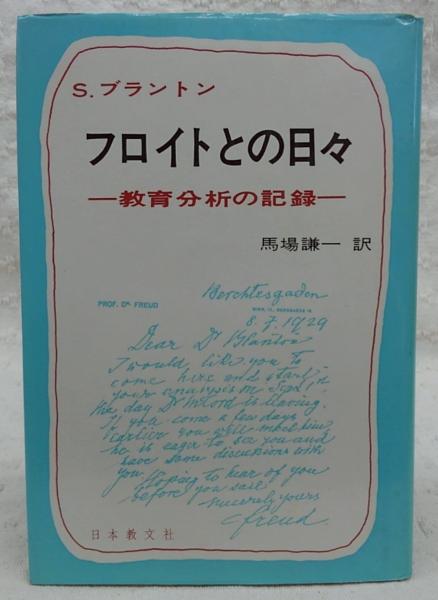 S.ブラントン
フロイトとの日々
―教育分析の記録―
馬場謙一 訳
Berchtesgaden
PROF. DR. FREUD
WIEN, IX., BERGGASSE 19.
8.7.1929
Dear Dr Blanton
I would like you to
come here and start
your analysis on Sept. 1,
the day Dr McCord is leaving.
If you come a few days
earlier you will meet him,
he is eager to see you and
have some discussions with
you. Hoping to hear of you
before you sail
sincerely yours
Freud
日本教文社